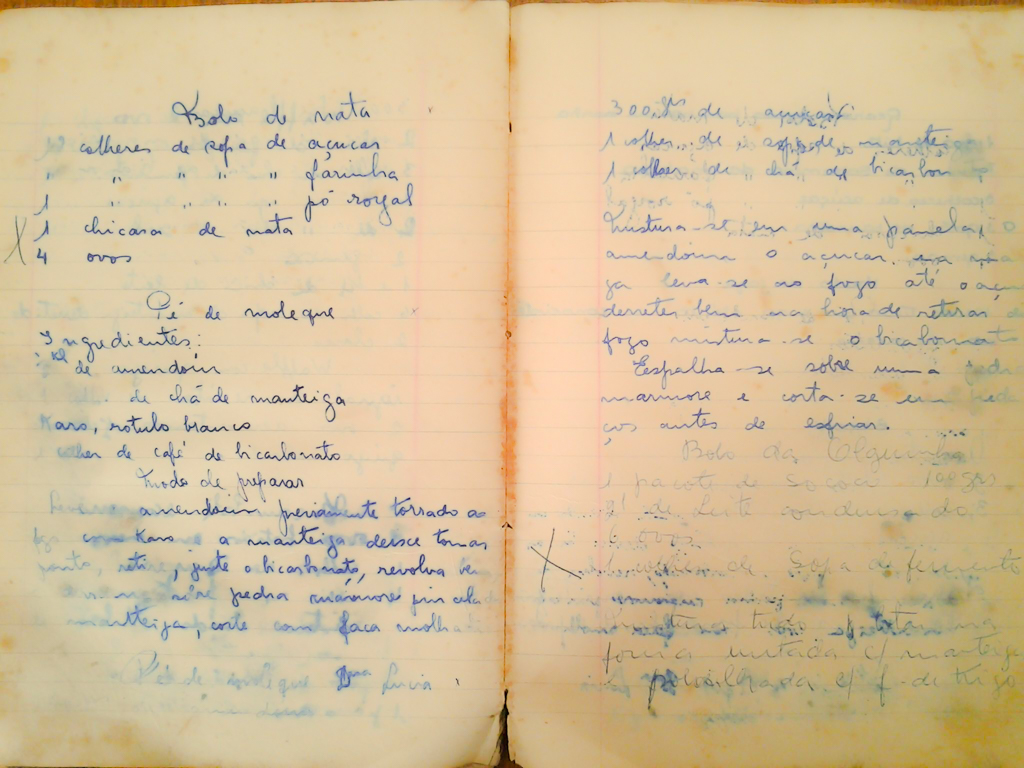 Bolo de nata
colheres de sopa de açucar
" " " " " farinha
1 " " " " pó royal
1 chicara de nata
4 ovos
Pé de moleque
Ingredientes:
Kl de amendoin
de chá de manteiga
Karo, rotulo branco
colher de café de bicarbonato
Modo de preparar
amendoim previamente torrado ao
com Karo a manteiga deixe tomar
ponto, retire, junte o bicarbonato, revolva bem
pedra mármore pincelada
manteiga, corte com faca molhada
Pé de moleque Dna Lucia
300 grs de açucar
1 colher de sopa de manteiga
1 colher de chá de bicarbon
Mistura-se em uma panela,
amendoim o açucar
leva-se ao fogo até o açu
derreter bem na hora de retirar
fogo mistura-se o bicarbonato
Espalha-se sobre uma pedra
marmore e corta-se em peda
ços antes de esfriar.
Bolo da Olguinha
1 pacote de 100 grs
de Leite condensado
6 ovos
colher de Sopa de fermento
Mistura tudo na
forma untada c/ manteiga
polvilhada c/ f. de trigo